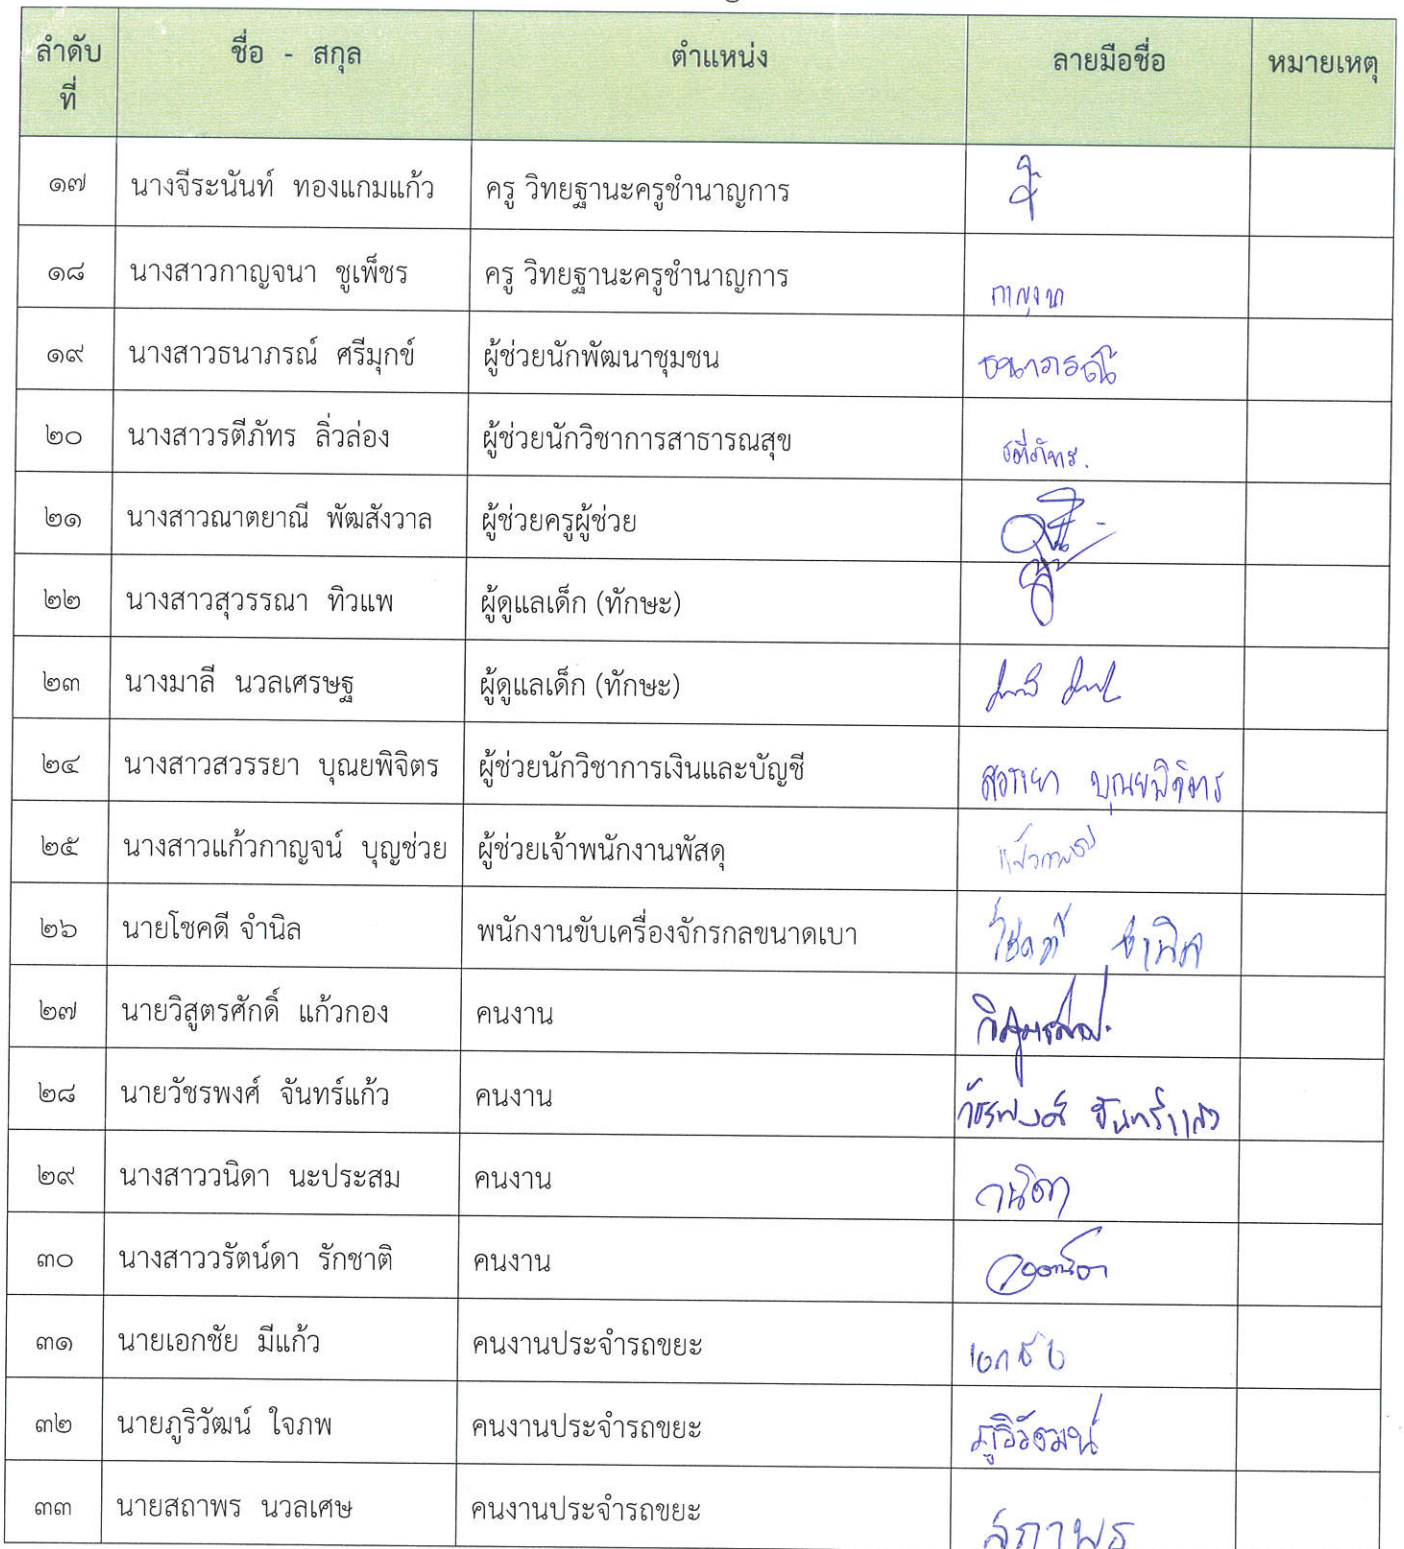 ลำดับ ชื่อ - สกุล ตำแหน่ง ลายมือชื่อ หมายเหตุ
ที่
๑๗ นางจีระนันท์ ทองแกมแก้ว ครู วิทยฐานะครูชำนาญการ
๑๘ นางสาวกาญจนา ชูเพ็ชร ครู วิทยฐานะครูชำนาญการ
๑๙ นางสาวธนาภรณ์ ศรีมุกข์ ผู้ช่วยนักพัฒนาชุมชน ธนาภรณ์
๒๐ นางสาวรตีภัทร ลิ่วล่อง ผู้ช่วยนักวิชาการสาธารณสุข รตีภัทร.
๒๑ นางสาวณาตยาณี พัฒสังวาล ผู้ช่วยครูผู้ช่วย
๒๒ นางสาวสุวรรณา ทิวแพ ผู้ดูแลเด็ก (ทักษะ)
๒๓ นางมาลี นวลเศรษฐ ผู้ดูแลเด็ก (ทักษะ)
๒๔ นางสาวสวรรยา บุณยพิจิตร ผู้ช่วยนักวิชาการเงินและบัญชี สวรรยา บุณยพิจิตร
๒๕ นางสาวแก้วกาญจน์ บุญช่วย ผู้ช่วยเจ้าพนักงานพัสดุ
๒๖ นายโชคดี จำนิล พนักงานขับเครื่องจักรกลขนาดเบา โชคดี จำนิล
๒๗ นายวิสูตรศักดิ์ แก้วกอง คนงาน
๒๘ นายวัชรพงศ์ จันทร์แก้ว คนงาน วัชรพงศ์ จันทร์แก้ว
๒๙ นางสาววนิดา นะประสม คนงาน วนิดา
๓๐ นางสาววรัตน์ดา รักชาติ คนงาน
๓๑ นายเอกชัย มีแก้ว คนงานประจำรถขยะ เอกชัย
๓๒ นายภูริวัฒน์ ใจภพ คนงานประจำรถขยะ ภูริวัฒน์
๓๓ นายสถาพร นวลเศษ คนงานประจำรถขยะ สถาพร